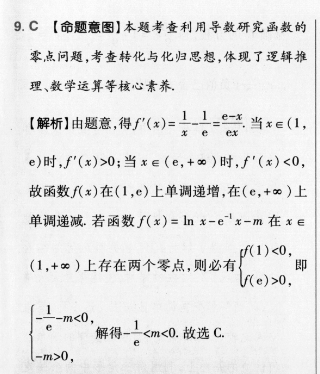 9. C 【命题意图】本题考查利用导数研究函数的
零点问题,考查转化与化归思想,体现了逻辑推
理、数学运算等核心素养.
【解析】由题意,得f′(x)=1/x-1/e=(e-x)/(ex). 当x∈(1,
e)时,f′(x)>0;当x∈(e,+∞)时,f′(x)<0,
故函数f(x)在(1,e)上单调递增,在(e,+∞)上
单调递减. 若函数f(x)=ln x-e⁻¹x-m 在 x∈
(1,+∞)上存在两个零点,则必有{f(1)<0, f(e)>0, 即
{-1/e-m<0, -m>0, 解得-1/e<m<0. 故选 C.